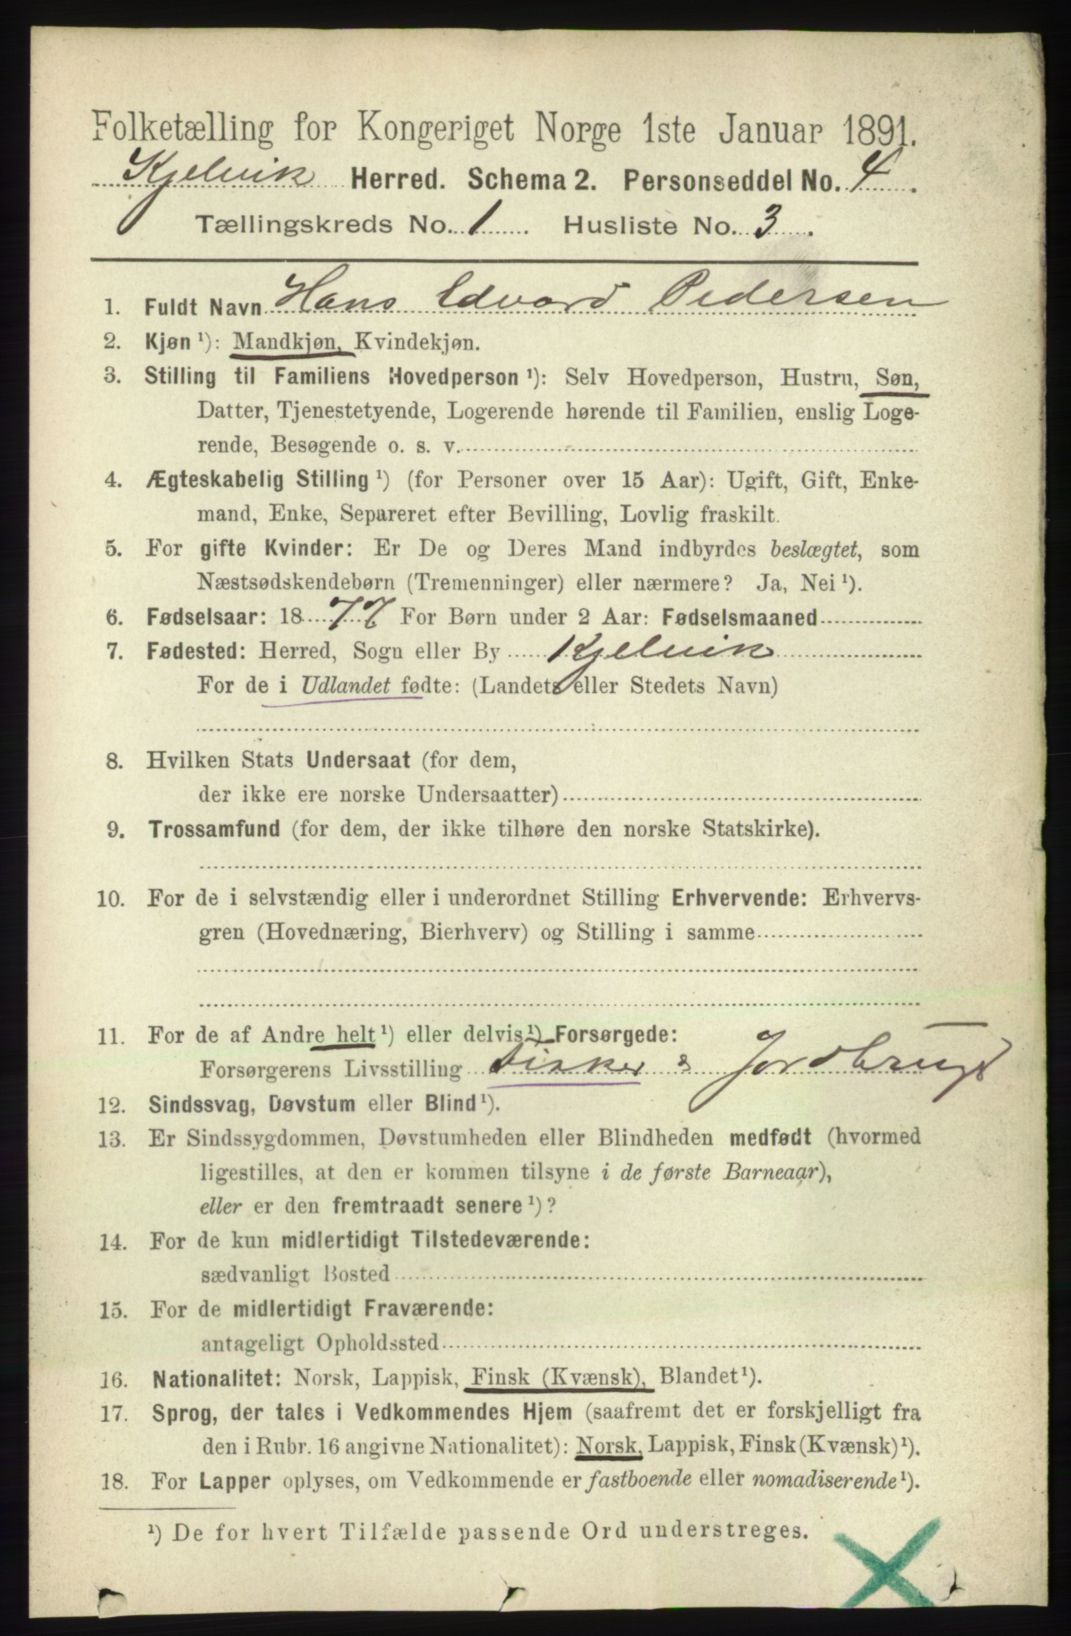 Folketælling for Kongeriget Norge 1ste Januar 1891.
Kjelvik Herred. Schema 2. Personseddel No. 4.
Tællingskreds No. 1. Husliste No. 3.
1. Fuldt Navn Hans Edvard Pedersen
2. Kjøn ¹): Mandkjøn, Kvindekjøn.
3. Stilling til Familiens Hovedperson ¹): Selv Hovedperson, Hustru, Søn,
Datter, Tjenestetyende, Logerende hørende til Familien, enslig Loge-
rende, Besøgende o. s. v.
4. Ægteskabelig Stilling ¹) (for Personer over 15 Aar): Ugift, Gift, Enke-
mand, Enke, Separeret efter Bevilling, Lovlig fraskilt.
5. For gifte Kvinder: Er De og Deres Mand indbyrdes beslægtet, som
Næstsødskendebørn (Tremenninger) eller nærmere? Ja, Nei ¹).
6. Fødselsaar: 1877 For Børn under 2 Aar: Fødselsmaaned
7. Fødested: Herred, Sogn eller By Kjelvik
For de i Udlandet fødte: (Landets eller Stedets Navn)
8. Hvilken Stats Undersaat (for dem,
der ikke ere norske Undersaatter)
9. Trossamfund (for dem, der ikke tilhøre den norske Statskirke).
10. For de i selvstændig eller i underordnet Stilling Erhvervende: Erhvervs-
gren (Hovednæring, Bierhverv) og Stilling i samme
11. For de af Andre helt ¹) eller delvis ¹) Forsørgede:
Forsørgerens Livsstilling Fisker & Jordbrug
12. Sindssvag, Døvstum eller Blind ¹).
13. Er Sindssygdommen, Døvstumheden eller Blindheden medfødt (hvormed
ligestilles, at den er kommen tilsyne i de første Barneaar),
eller er den fremtraadt senere ¹)?
14. For de kun midlertidigt Tilstedeværende:
sædvanligt Bosted
15. For de midlertidigt Fraværende:
antageligt Opholdssted
16. Nationalitet: Norsk, Lappisk, Finsk (Kvænsk), Blandet ¹).
17. Sprog, der tales i Vedkommendes Hjem (saafremt det er forskjelligt fra
den i Rubr. 16 angivne Nationalitet): Norsk, Lappisk, Finsk (Kvænsk) ¹).
18. For Lapper oplyses, om Vedkommende er fastboende eller nomadiserende ¹).
¹) De for hvert Tilfælde passende Ord understreges.